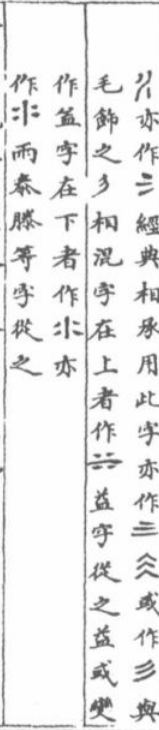 亦作二經典相承用此字亦作三或作彡與
毛飾之彡相混字在上者作益字從之益或變
作益字在下者作氺亦
作氺而泰膝等字從之